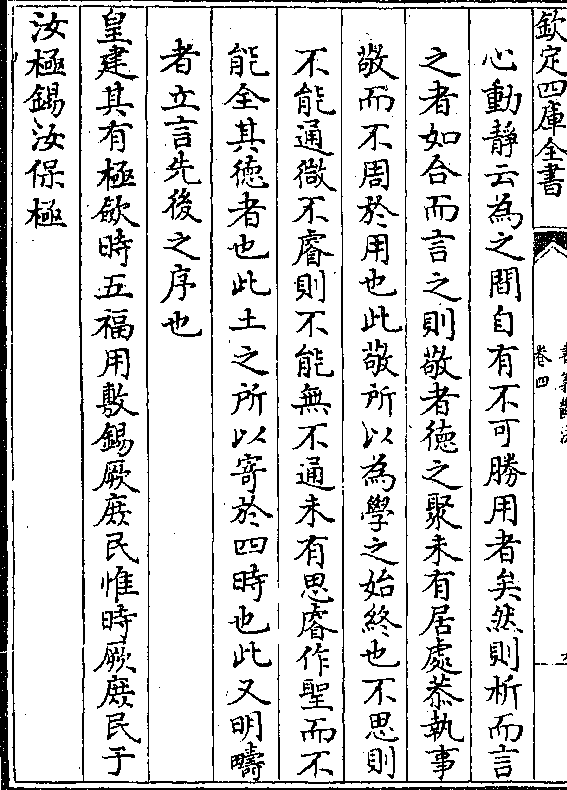 欽定四庫全書
卷四
心動靜云為之間自有不可勝用者矣然則析而言
之者如合而言之則敬者徳之聚未有居處恭執事
敬而不周於用也此敬所以為學之始終也不思則
不能通㣲不睿則不能無不通未有思睿作聖而不
能全其徳者也此土之所以寄於四時也此又明疇
者立言先後之序也
皇建其有極歛時五福用敷錫厥庶民惟時厥庶民于
汝極錫汝保極